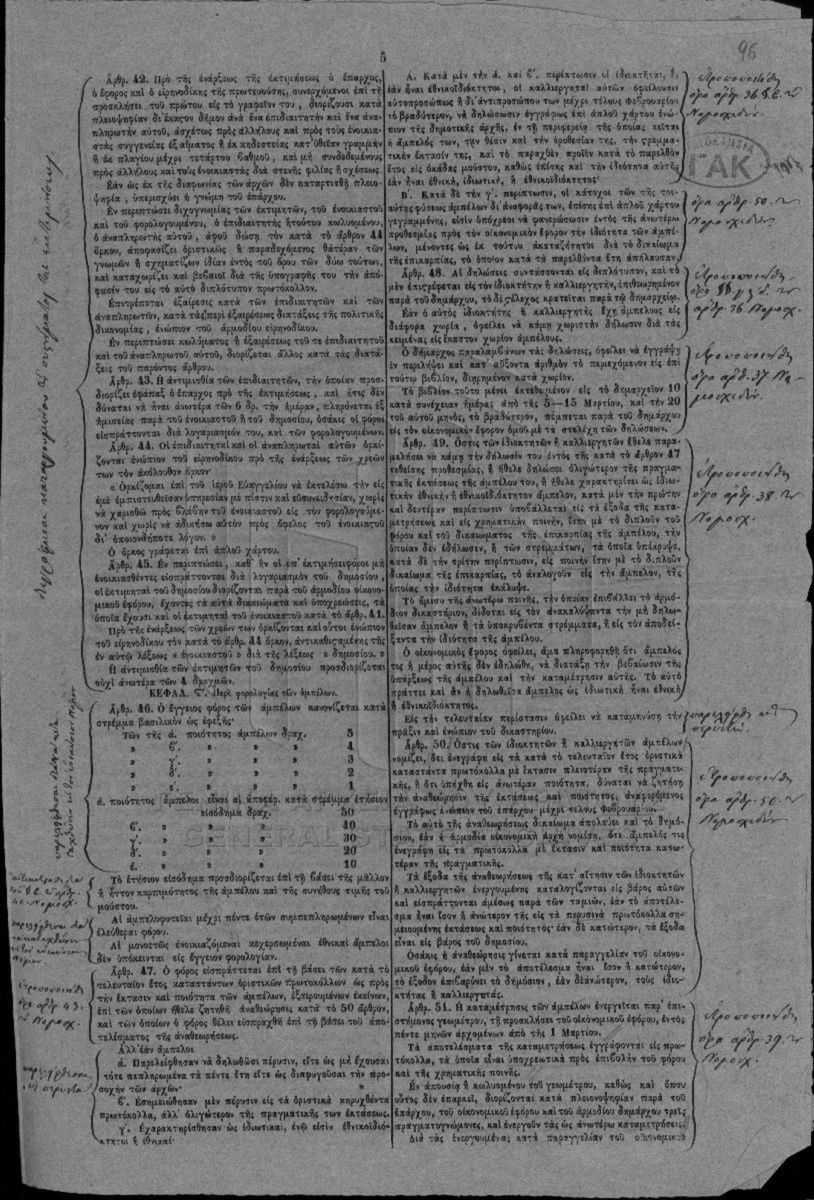 5
96
Ἄρθρ. 42. Πρὸ τῆς ἐνάρξεως τῆς ἐκτιμήσεως ὁ ἔπαρχος,
ὁ ἔφορος καὶ ὁ εἰρηνοδίκης τῆς πρωτευούσης, συνερχόμενοι ἐπὶ τῇ
προσκλήσει τοῦ πρώτου εἰς τὸ γραφεῖον του, διορίζουσι κατὰ
πλειοψηφίαν δι' ἕκαστον δῆμον ἀνὰ ἕνα ἐπιδιαιτητὴν καὶ ἕνα ἀνα-
πληρωτὴν αὐτοῦ, ἀσχέτως πρὸς ἀλλήλους καὶ πρὸς τοὺς ἐνοικια-
στὰς συγγενείας ἐξ αἵματος ἢ ἐκ κηδεστείας κατ' εὐθεῖαν γραμμὴν
ἢ ἐκ πλαγίου μέχρι τετάρτου βαθμοῦ, καὶ μὴ συνδεδεμένους
πρὸς ἀλλήλους καὶ τοὺς ἐνοικιαστὰς διὰ στενῆς φιλίας ἢ σχέσεως.
Ἐὰν ὡς ἐκ τῆς διαφωνίας τῶν ἀρχῶν δὲν καταρτισθῇ πλειο-
ψηφία, ὑπερισχύει ἡ γνώμη τοῦ ἐπάρχου.
Ἐν περιπτώσει διχογνωμίας τῶν ἐκτιμητῶν, τοῦ ἐνοικιαστοῦ
καὶ τοῦ φορολογουμένου, ὁ ἐπιδιαιτητὴς ἢ τούτου κωλυομένου,
ὁ ἀναπληρωτὴς αὐτοῦ, ἀφοῦ δώσῃ τὸν κατὰ τὸ ἄρθρον 44
ὅρκον, ἀποφασίζει ὁριστικῶς ἢ παραδεχόμενος θατέραν τῶν
γνωμῶν ἢ σχηματίζων ἰδίαν ἐντὸς τοῦ ὅρου τῶν δύω τούτων,
καὶ καταχωρίζει καὶ βεβαιοῖ διὰ τῆς ὑπογραφῆς του τὴν ἀπό-
φασίν του εἰς τὸ αὐτὸ διπλότυπον πρωτόκολλον.
Ἐπιτρέπεται ἐξαίρεσις κατὰ τῶν ἐπιδιαιτητῶν καὶ τῶν
ἀναπληρωτῶν, κατὰ τὰς περὶ ἐξαιρέσεως διατάξεις τῆς πολιτικῆς
δικονομίας, ἐνώπιον τοῦ ἁρμοδίου εἰρηνοδίκου.
Ἐν περιπτώσει κωλύματος ἢ ἐξαιρέσεως τοῦ τε ἐπιδιαιτητοῦ
καὶ τοῦ ἀναπληρωτοῦ αὐτοῦ, διορίζεται ἄλλος κατὰ τὰς διατά-
ξεις τοῦ παρόντος ἄρθρου.
Ἄρθρ. 43. Ἡ ἀντιμισθία τῶν ἐπιδιαιτητῶν, τὴν ὁποίαν προσ-
διορίζει ἐφάπαξ ὁ ἔπαρχος πρὸ τῆς ἐκτιμήσεως, καὶ ἥτις δὲν
δύναται νὰ ἦναι ἀνωτέρα τῶν 6 δρ. τὴν ἡμέραν, πληρόνεται ἐξ
ἡμισείας παρὰ τοῦ ἐνοικιαστοῦ ἢ τοῦ δημοσίου, ὁσάκις οἱ φόροι
εἰσπράττονται διὰ λογαριασμόν του, καὶ τῶν φορολογουμένων.
Ἄρθρ. 44. Οἱ ἐπιδιαιτηταὶ καὶ οἱ ἀναπληρωταὶ αὐτῶν ὁρκί-
ζονται ἐνώπιον τοῦ εἰρηνοδίκου πρὸ τῆς ἐνάρξεως τῶν χρεῶν
των τὸν ἀκόλουθον ὅρκον·
« Ὁρκίζομαι ἐπὶ τοῦ ἱεροῦ Εὐαγγελίου νὰ ἐκτελέσω τὴν εἰς
ἐμὲ ἐμπιστευθεῖσαν ὑπηρεσίαν μὲ πίστιν καὶ εὐσυνειδησίαν, χωρὶς
νὰ χαρισθῶ πρὸς βλάβην τοῦ ἐνοικιαστοῦ εἰς τὸν φορολογούμε-
νον καὶ χωρὶς νὰ ἀδικήσω αὐτὸν πρὸς ὄφελος τοῦ ἐνοικιαστοῦ
δι' ὁποιονδήποτε λόγον. »
Ὁ ὅρκος γράφεται ἐπὶ ἁπλοῦ χάρτου.
Ἄρθρ. 45. Ἐν περιπτώσει, καθ' ἣν οἱ ἐπ' ἐκτιμήσει φόροι μὴ
ἐνοικιασθέντες εἰσπράττονται διὰ λογαριασμὸν τοῦ δημοσίου,
οἱ ἐκτιμηταὶ τοῦ δημοσίου διορίζονται παρὰ τοῦ ἁρμοδίου οἰκονο-
μικοῦ ἐφόρου, ἔχοντες τὰ αὐτὰ δικαιώματα καὶ ὑποχρεώσεις, τὰ
ὁποῖα ἔχουσι καὶ οἱ ἐκτιμηταὶ τοῦ ἐνοικιαστοῦ κατὰ τὸ ἄρθρ. 41.
Πρὸ τῆς ἐνάρξεως τῶν χρεῶν των ὁρκίζονται καὶ οὗτοι ἐνώπιον
τοῦ εἰρηνοδίκου τὸν κατὰ τὸ ἄρθρ. 44 ὅρκον, ἀντικαθισταμένης τῆς
ἐν αὐτῷ λέξεως « ἐνοικιαστοῦ » διὰ τῆς λέξεως « δημοσίου. »
Ἡ ἀντιμισθία τῶν ἐκτιμητῶν τοῦ δημοσίου προσδιορίζεται
οὐχὶ ἀνωτέρα τῶν 4 δραχμῶν.
ΚΕΦΑΔ. ς'. Περὶ φορολογίας τῶν ἀμπέλων.
Ἄρθρ. 46. Ὁ ἔγγειος φόρος τῶν ἀμπέλων κανονίζεται κατὰ
στρέμμα βασιλικὸν ὡς ἐφεξῆς·
Τῶν τῆς ά. ποιότητος ἀμπέλων δραχ. 5
» β'. » » » 4
» γ'. » » » 3
» δ'. » » » 2
» έ. » » » 1
ά. ποιότητος ἄμπελοι εἶναι αἱ ἀποφέρ. κατὰ στρέμμα ἐτήσιον
εἰσόδημα δραχ. 50
β'. » » » » 40
γ'. » » » » 30
δ'. » » » » 20
έ. » » » » 10
Τὸ ἐτήσιον εἰσόδημα προσδιορίζεται ἐπὶ τῇ βάσει τῆς μᾶλλον
ἢ ἧττον καρπιμότητος τῆς ἀμπέλου καὶ τῆς συνήθους τιμῆς τοῦ
μούστου.
Αἱ ἀμπελοφυτεῖαι μέχρι πέντε ἐτῶν συμπεπληρωμένων εἶναι
ἐλεύθεραι φόρου.
Αἱ μονοετῶς ἐνοικιαζόμεναι κεχερσωμέναι ἐθνικαὶ ἄμπελοι
δὲν ὑπόκεινται εἰς ἔγγειον φορολογίαν.
Ἄρθρ. 47. Ὁ φόρος εἰσπράττεται ἐπὶ τῇ βάσει τῶν κατὰ τὸ
τελευταῖον ἔτος καταστάντων ὁριστικῶν πρωτοκόλλων ὡς πρὸς
τὴν ἔκτασιν καὶ ποιότητα τῶν ἀμπέλων, ἐξαιρουμένων ἐκείνων,
ἐπὶ τῶν ὁποίων ἤθελε ζητηθῆ ἀναθεώρησις κατὰ τὸ 50 ἄρθρον,
καὶ τῶν ὁποίων ὁ φόρος θέλει εἰσπραχθῆ ἐπὶ τῇ βάσει τοῦ ἀποτε-
λέσματος τῆς ἀναθεωρήσεως.
Ἀλλ' ἐὰν ἄμπελοι
ά. Παρελείφθησαν νὰ δηλωθῶσι πέρυσιν, εἴτε ὡς μὴ ἔχουσαι
τότε πεπληρωμένα τὰ πέντε ἔτη εἴτε ὡς διαφυγοῦσαι τὴν προ-
σοχὴν τῶν ἀρχῶν·
β'. Ἐσημειώθησαν μὲν πέρυσιν εἰς τὰ ὁριστικὰ κηρυχθέντα
πρωτόκολλα, ἀλλ' ὀλιγώτερον τῆς πραγματικῆς των ἐκτάσεως.
γ'. Ἐχαρακτηρίσθησαν ὡς ἰδιωτικαὶ, ἐνῷ εἰσὶν ἐθνικοϊδιό-
κτητοι ἢ ἐθνικαί·
Α. Κατὰ μὲν τὴν ά. καὶ β'. περίπτωσιν οἱ ἰδιοκτῆται, ἢ,
ἐὰν ἦναι ἐθνικοϊδιόκτητοι, οἱ καλλιεργηταὶ αὐτῶν ὀφείλουσιν
αὐτοπροσώπως ἢ δι' ἀντιπροσώπου των μέχρι τέλους Φεβρουαρίου
τὸ βραδύτερον, νὰ δηλώσωσιν ἐγγράφως ἐπὶ ἁπλοῦ χάρτου ἐνώ-
πιον τῆς δημοτικῆς ἀρχῆς, ἐν τῇ περιφερείᾳ τῆς ὁποίας κεῖται
ἡ ἄμπελός των, τὴν θέσιν καὶ τὴν ὁροθεσίαν της, τὴν στρεμμα-
τικὴν ἔκτασίν της, καὶ τὸ παραχθὲν προϊὸν κατὰ τὸ παρελθὸν
ἔτος εἰς ὀκάδας μούστου, καθὼς ἐπίσης καὶ τὴν ἰδιότητα αὐτῆς,
ἐὰν ἦναι ἐθνικὴ, ἰδιωτικὴ, ἢ ἐθνικοϊδιόκτητος·
Β. Κατὰ δὲ τὴν γ'. περίπτωσιν, οἱ κάτοχοι τῶν τῆς τοι-
αύτης φύσεως ἀμπέλων δι' ἀναφορᾶς των, ἐπίσης ἐπὶ ἁπλοῦ χάρτου
γεγραμμένης, εἰσὶν ὑπόχρεοι νὰ φανερώσωσιν ἐντὸς τῆς ἀνωτέρω
προθεσμίας πρὸς τὸν οἰκονομικὸν ἔφορον τὴν ἰδιότητα τῶν ἀμπέ-
λων, μένοντες ὡς ἐκ τούτου ἀκαταζήτητοι διὰ τὸ δικαίωμα
τῆς ἐπικαρπίας, τὸ ὁποῖον κατὰ τὰ παρελθόντα ἔτη ἀπήλαυσαν.
Ἄρθρ. 48. Αἱ δηλώσεις συντάσσονται εἰς διπλότυπον, καὶ τὸ
μὲν ἐπιστρέφεται εἰς τὸν ἰδιοκτήτην ἢ καλλιεργητὴν, ἐπιθεωρημένον
παρὰ τοῦ δημάρχου, τὸ δὲ στέλεχος κρατεῖται παρὰ τῷ δημαρχείῳ.
Ἐὰν ὁ αὐτὸς ἰδιοκτήτης ἢ καλλιεργητὴς ἔχῃ ἀμπέλους εἰς
διάφορα χωρία, ὀφείλει νὰ κάμῃ χωριστὴν δήλωσιν διὰ τὰς
κειμένας εἰς ἕκαστον χωρίον ἀμπέλους.
Ὁ δήμαρχος παραλαμβάνων τὰς δηλώσεις, ὀφείλει νὰ ἐγγράφῃ
ἐν περιλήψει καὶ κατ' αὔξοντα ἀριθμὸν τὸ περιεχόμενον εἰς ἐπὶ
τούτῳ βιβλίον, διῃρημένον κατὰ χωρίον.
Τὸ βιβλίον τοῦτο μένει ἐκτεθειμένον εἰς τὸ δημαρχεῖον 10
κατὰ συνέχειαν ἡμέρας ἀπὸ τῆς 5—15 Μαρτίου, καὶ τὴν 20
τοῦ αὐτοῦ μηνὸς, τὸ βραδύτερον, πέμπεται παρὰ τοῦ δημάρχου
εἰς τὸν οἰκονομικὸν ἔφορον ὁμοῦ μὲ τὰ στελέχη τῶν δηλώσεων.
Ἄρθρ. 49. Ὅστις τῶν ἰδιοκτητῶν ἢ καλλιεργητῶν ἤθελε παρα-
μελήσει νὰ κάμῃ τὴν δήλωσίν του ἐντὸς τῆς κατὰ τὸ ἄρθρον 47
τεθείσης προθεσμίας, ἢ ἤθελε δηλώσει ὀλιγώτερον τῆς πραγμα-
τικῆς ἐκτάσεως τῆς ἀμπέλου του, ἢ ἤθελε χαρακτηρίσει ὡς ἰδιω-
τικὴν ἐθνικὴν ἢ ἐθνικοϊδιόκτητον ἄμπελον, κατὰ μὲν τὴν πρώτην
καὶ δευτέραν περίπτωσιν ὑποβάλλεται εἰς τὰ ἔξοδα τῆς κατα-
μετρήσεως καὶ εἰς χρηματικὴν ποινὴν, ἴσην μὲ τὸ διπλοῦν τοῦ
φόρου καὶ τοῦ δικαιώματος τῆς ἐπικαρπίας τῆς ἀμπέλου, τὴν
ὁποίαν δὲν ἐδήλωσεν, ἢ τῶν στρεμμάτων, τὰ ὁποῖα ὑπέκρυψε,
κατὰ δὲ τὴν τρίτην περίπτωσιν, εἰς ποινὴν ἴσην μὲ τὸ διπλοῦν
δικαίωμα τῆς ἐπικαρπίας, τὸ ἀναλογοῦν εἰς τὴν ἄμπελον, τῆς
ὁποίας τὴν ἰδιότητα ἐκάλυψε.
Τὸ ἥμισυ τῆς ἀνωτέρω ποινῆς, τὴν ὁποίαν ἐπιβάλλει τὸ ἁρμό-
διον δικαστήριον, δίδοται εἰς τὸν ἀνακαλύψαντα τὴν μὴ δηλω-
θεῖσαν ἄμπελον ἢ τὰ ὑποκρυβέντα στρέμματα, ἢ εἰς τὸν ἀποδεί-
ξαντα τὴν ἰδιότητα τῆς ἀμπέλου.
Ὁ οἰκονομικὸς ἔφορος ὀφείλει, ἅμα πληροφορηθῇ ὅτι ἄμπελός
τις ἢ μέρος αὐτῆς δὲν ἐδηλώθη, νὰ διατάξῃ τὴν βεβαίωσιν τῆς
ὑπάρξεως τῆς ἀμπέλου καὶ τὴν καταμέτρησιν αὐτῆς. Τὸ αὐτὸ
πράττει καὶ ἂν ἡ δηλωθεῖσα ἄμπελος ὡς ἰδιωτικὴ ἦναι ἐθνικὴ
ἢ ἐθνικοϊδιόκτητος.
Εἰς τὴν τελευταίαν περίστασιν ὀφείλει νὰ καταμηνύσῃ τὴν
πρᾶξιν καὶ ἐνώπιον τοῦ δικαστηρίου.
Ἄρθρ. 50. Ὅστις τῶν ἰδιοκτητῶν ἢ καλλιεργητῶν ἀμπέλων
νομίζει, ὅτι ἐνεγράφη εἰς τὰ κατὰ τὸ τελευταῖον ἔτος ὁριστικὰ
καταστάντα πρωτόκολλα μὲ ἔκτασιν πλειοτέραν τῆς πραγματι-
κῆς, ἢ ὅτι ὑπήχθη εἰς ἀνωτέραν ποιότητα, δύναται νὰ ζητήσῃ
τὴν ἀναθεώρησιν τῆς ἐκτάσεως καὶ ποιότητος, ἀναφερόμενος
ἐγγράφως ἐνώπιον τοῦ ἐπάρχου μέχρι τέλους Φεβρουαρίου.
Τὸ αὐτὸ τῆς ἀναθεωρήσεως δικαίωμα ἀπολαύει καὶ τὸ δη-
μόσιον, ἐὰν ἡ ἁρμοδία οἰκονομικὴ ἀρχὴ νομίσῃ, ὅτι ἄμπελός τις
ἐνεγράφη εἰς τὰ πρωτόκολλα μὲ ἔκτασιν καὶ ποιότητα κατω-
τέραν τῆς πραγματικῆς.
Τὰ ἔξοδα τῆς ἀναθεωρήσεως τῆς κατ' αἴτησιν τῶν ἰδιοκτητῶν
ἢ καλλιεργητῶν ἐνεργουμένης καταλογίζονται εἰς βάρος αὐτῶν
καὶ εἰσπράττονται ἀμέσως παρὰ τῶν ταμιῶν, ἐὰν τὸ ἀποτέλε-
σμα ἦναι ἴσον ἢ ἀνώτερον τῆς εἰς τὰ περυσινὰ πρωτόκολλα ση-
μειουμένης ἐκτάσεως καὶ ποιότητος· ἐὰν δὲ κατώτερον, τὰ ἔξοδα
εἶναι εἰς βάρος τοῦ δημοσίου.
Ὁσάκις ἡ ἀναθεώρησις γίνεται κατὰ παραγγελίαν τοῦ οἰκονο-
μικοῦ ἐφόρου, ἐὰν μὲν τὸ ἀποτέλεσμα ἦναι ἴσον ἢ κατώτερον,
τὸ ἔξοδον ἐπιβαρύνει τὸ δημόσιον, ἐὰν δὲ ἀνώτερον, τοὺς ἰδιο-
κτήτας ἢ καλλιεργητάς.
Ἄρθρ. 51. Ἡ καταμέτρησις τῶν ἀμπέλων ἐνεργεῖται παρ' ἐπι-
στήμονος γεωμέτρου, τῇ προσκλήσει τοῦ οἰκονομικοῦ ἐφόρου, ἐντὸς
πέντε μηνῶν ἀρχομένων ἀπὸ τῆς 1 Μαρτίου.
Τὰ ἀποτελέσματα τῆς καταμετρήσεως ἐγγράφονται εἰς πρω-
τόκολλα, τὰ ὁποῖα εἶναι ὑποχρεωτικὰ πρὸς ἐπιβολὴν τοῦ φόρου
καὶ τῆς χρηματικῆς ποινῆς.
Ἐν ἀπουσίᾳ ἢ κωλυομένου τοῦ γεωμέτρου, καθὼς καὶ ὅπου
οὗτος δὲν ἐπαρκεῖ, διορίζονται κατὰ πλειονοψηφίαν παρὰ τοῦ
ἐπάρχου, τοῦ οἰκονομικοῦ ἐφόρου καὶ τοῦ ἁρμοδίου δημάρχου τρεῖς
πραγματογνώμονες, καὶ ἐνεργοῦν τὰς ὡς ἀνωτέρω καταμετρήσεις.
Διὰ τὰς ἐνεργουμένας κατὰ παραγγελίαν τοῦ οἰκονομικοῦ
ΓΑΚ
Ἐτροποποιήθη
ὅρα ἄρθρ. 37 Νο-
μοσχεδίου
Ἐτροποποιήθη
ὅρα ἄρθρ. 38. τ
Νομοσχ.
Ἐτροποποιήθη
ὅρα ἄρθρ. 50. τ
Νομοσχεδίου
Ἐτροποποιήθη
ὅρα ἄρθρ. 39. τ
Νομοσχ.